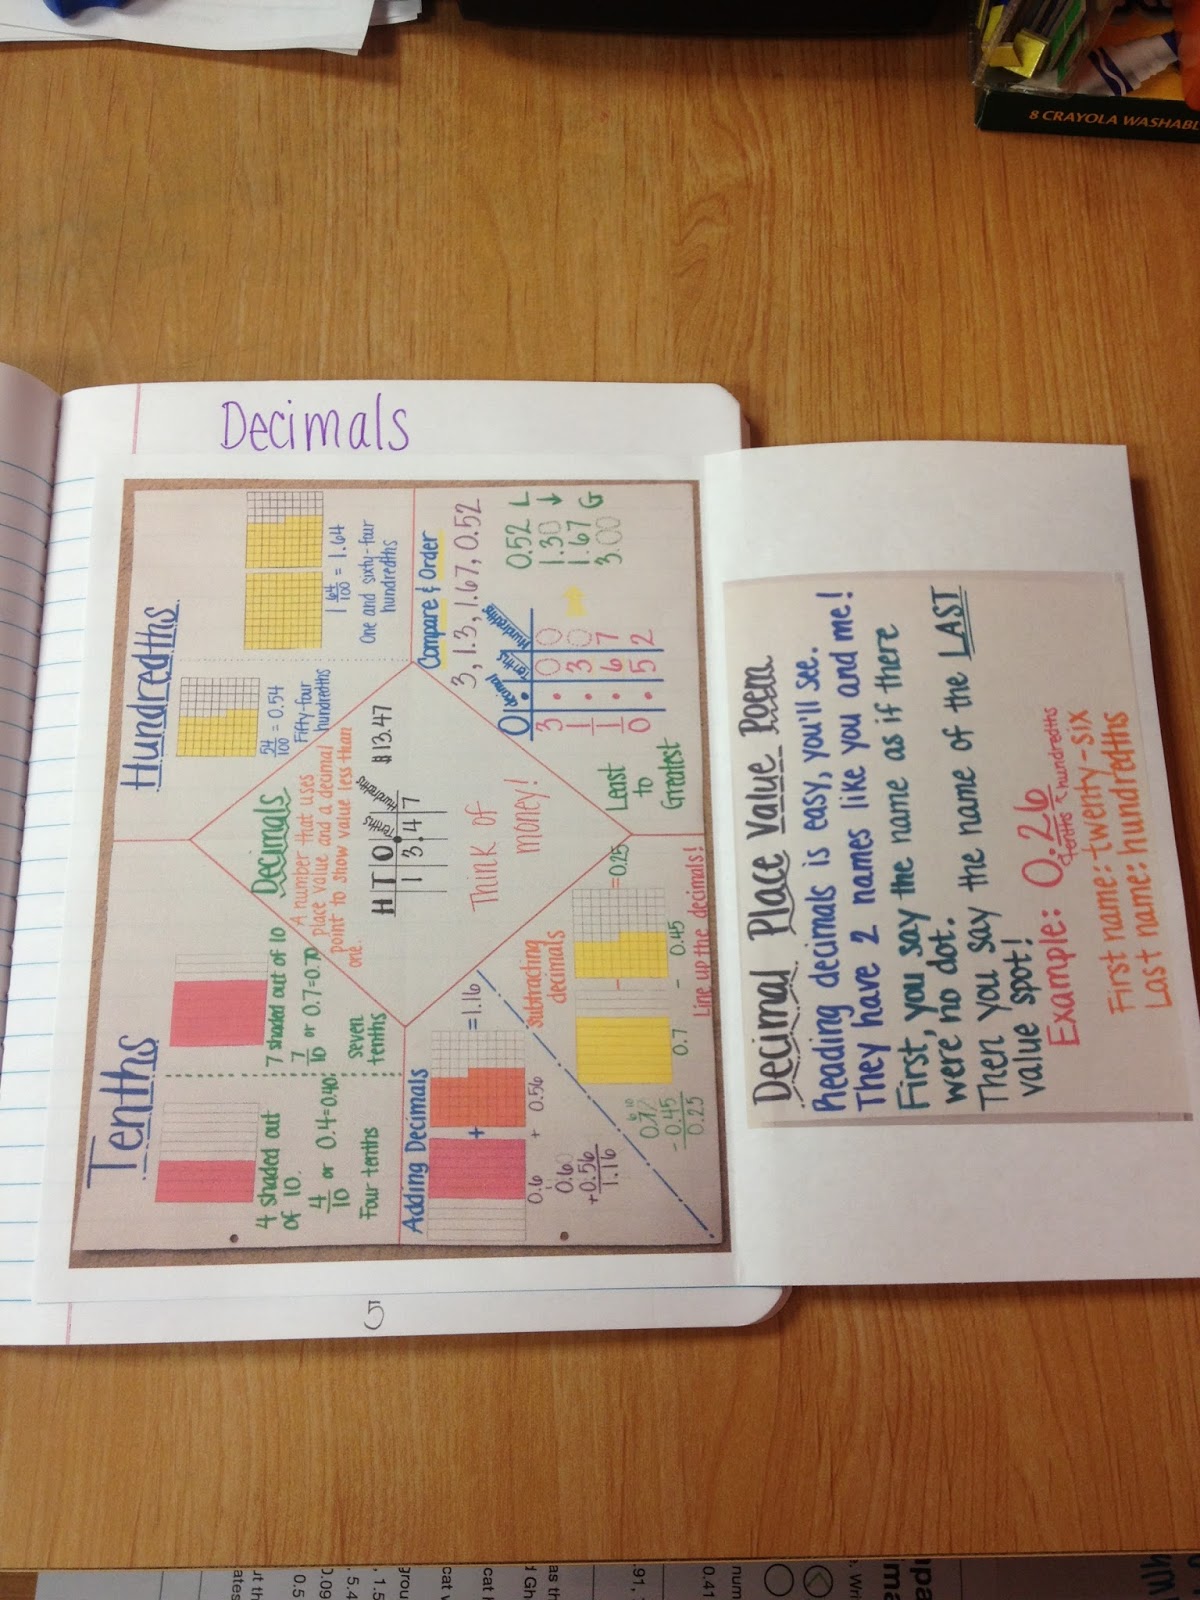 Decimals
5
Tenths
4 shaded out
of 10.
4/10 or 0.4=0.40
Four tenths
7 shaded out of 10
7/10 or 0.7=0.70
seven
tenths
Hundredths
54/100 = 0.54
Fifty-four
hundredths
1 64/100 = 1.64
One and sixty-four
hundredths
Decimals
A number that uses
place value and a decimal
point to show value less than
one.
H T O . Tenths Hundredths
1 3 . 4 7
$13.47
Think of
money!
Adding Decimals
+
0.6 + 0.56 = 1.16
0.60
+0.56
1.16
subtracting
decimals
-
0.7 - 0.45 = 0.25
6 10
0.7
-0.45
0.25
Line up the decimals!
Compare & Order
3, 1.3, 1.67, 0.52
O . decimal Tenths Hundredths
3 . 0 0
1 . 3 0
1 . 6 7
0 . 5 2
0.52 L
1.30 ↓
1.67
3.00 G
Least
to
Greatest
Decimal Place Value Poem
Reading decimals is easy, you'll see.
They have 2 names like you and me!
First, you say the name as if there
were no dot.
Then you say the name of the LAST
value spot!
Example: 0.26
tenths hundredths
First name: twenty-six
Last name: hundredths
8 CRAYOLA WASHABL
0.41
.91,
num
. Writ
0.5
0.09
5.4
1.5
grou
cat v
cat H
d Gh
as th
ut th
ates